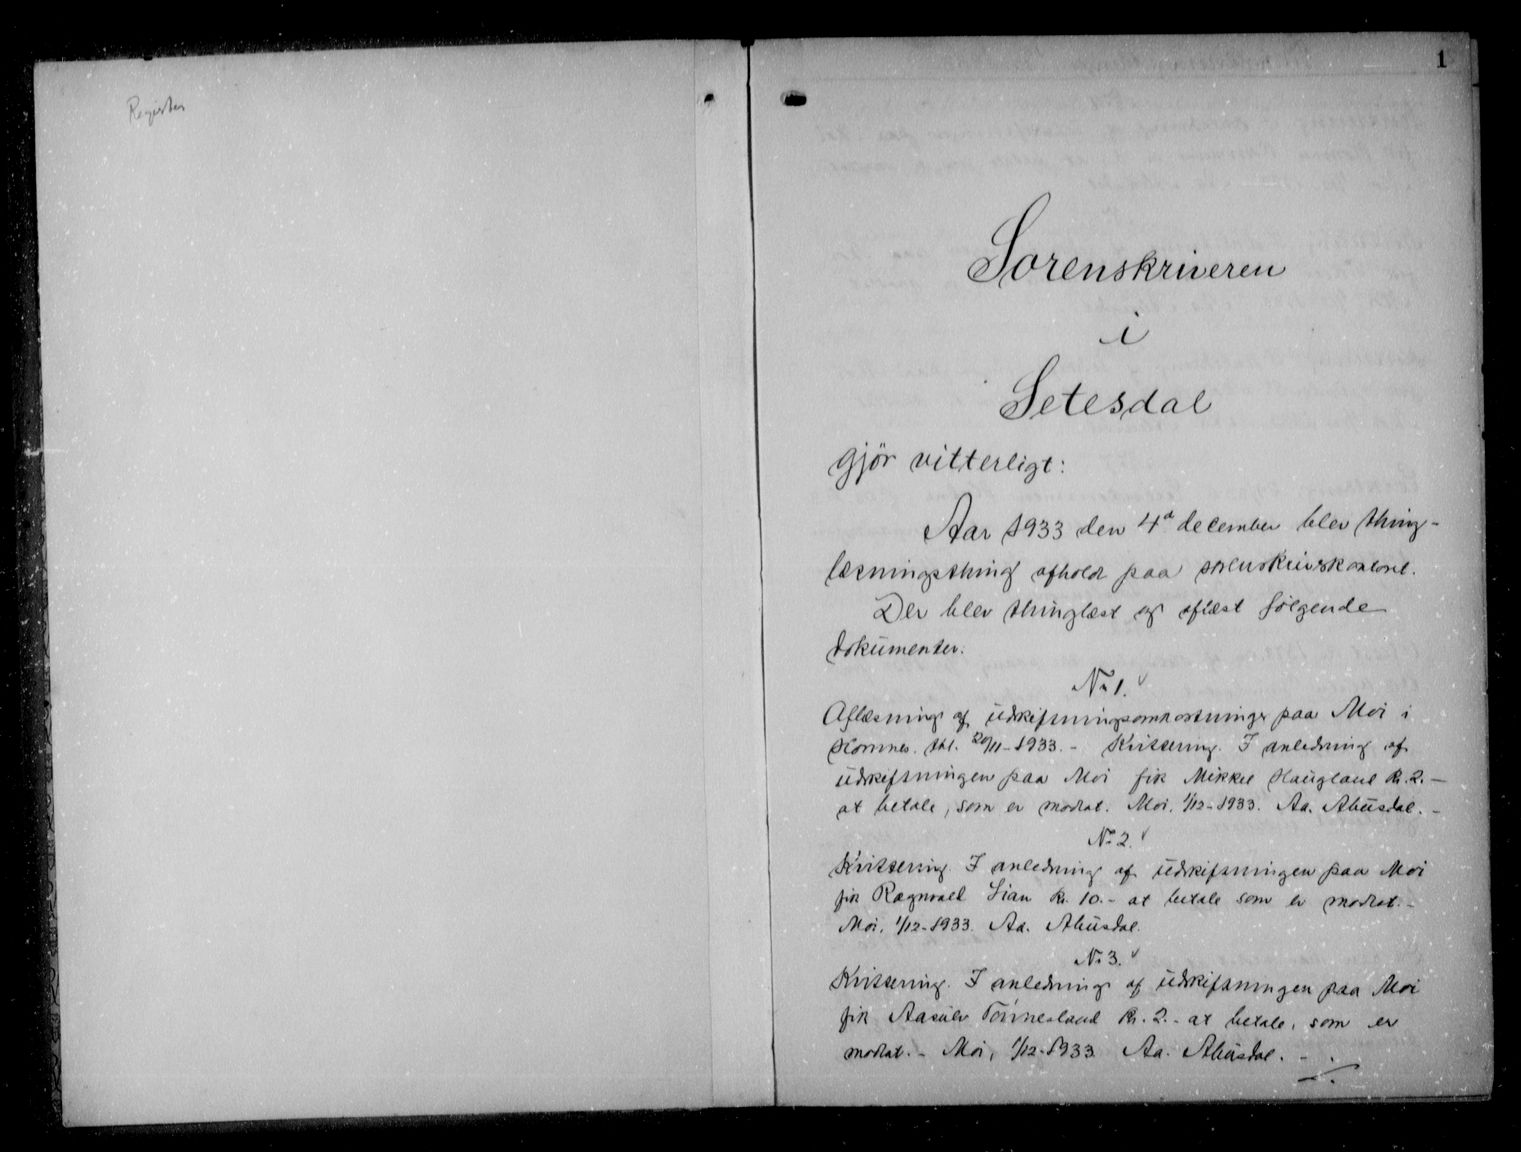 Register
1
Sorenskriveren
i
Setesdal
gjör vitterligt:
Aar 1933 den 4de december blev thing-
læsningsthing afholdt paa sorenskriverkontoret.
Der blev thinglæst og aflæst følgende
dokumenter.
No 1.
Aflæsning af udskiftningsomkostninger paa Moi i
Hornnes. thl. 20/11-1933. - Kvittering. I anledning af
udskiftningen paa Moi fik Mikkel Haugland Kr. 2. -
at betale, som er modtat. Moi, 1/12-1933. Aa. Åkusdal. -
No 2.
Kvittering. I anledning af udskiftningen paa Moi
fik Ragnvald Lian Kr. 10. - at betale som er modtat. -
Moi, 1/12-1933. Aa.
No 3.
Kvittering. I anledning af udskiftningen paa Moi
fik Aasulv Tönnesland Kr. 2. - at betale, som er
modtat. - Moi, 1/12-1933 Aa.